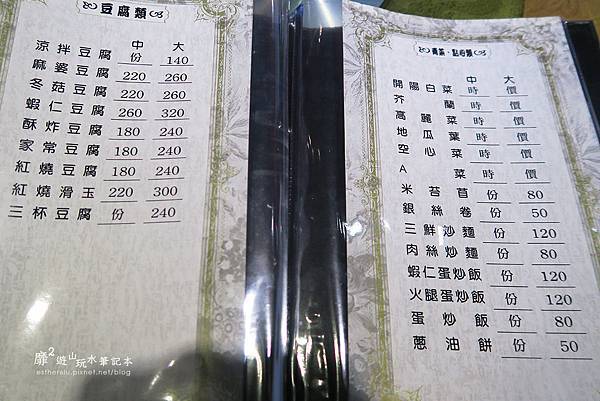 豆腐類
中 大
涼拌豆腐 份 140
麻婆豆腐 220 260
冬菇豆腐 220 260
蝦仁豆腐 260 320
酥炸豆腐 180 240
家常豆腐 180 240
紅燒豆腐 180 240
紅燒滑玉 220 300
三杯豆腐 份 240
青菜・點心類
中 大
開陽白菜 時 價
芥蘭 時 價
高麗菜 時 價
地瓜葉 時 價
空心菜 時 價
A菜 時 價
米苔目 份 80
銀絲卷 份 50
三鮮炒麵 份 120
肉絲炒麵 份 120
蝦仁蛋炒飯 份 120
火腿蛋炒飯 份 120
蛋炒飯 份 80
蔥油餅 份 50
靡2遊山玩水筆記本
estherslu.pixnet.net/blog